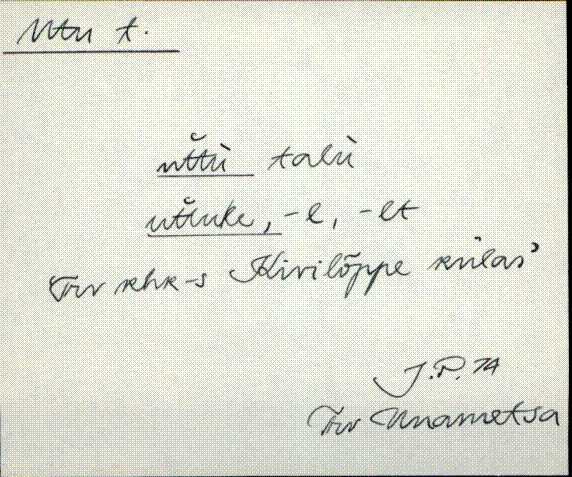 Uttu t.
uttu talu
uttuke, -e, -et
Trv khk-s Kivilõppe külas
J.P. 74
Trv Unametsa